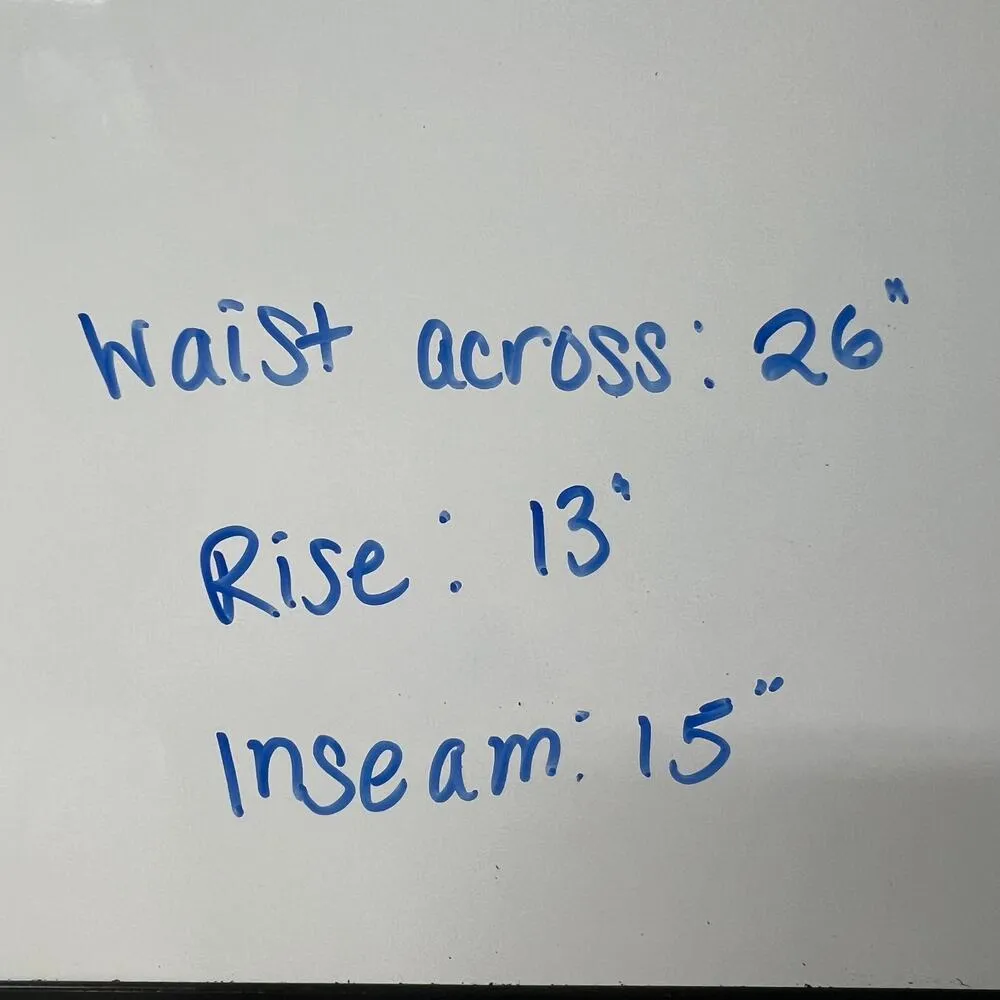 Waist across: 26"
Rise: 13"
Inseam: 15"